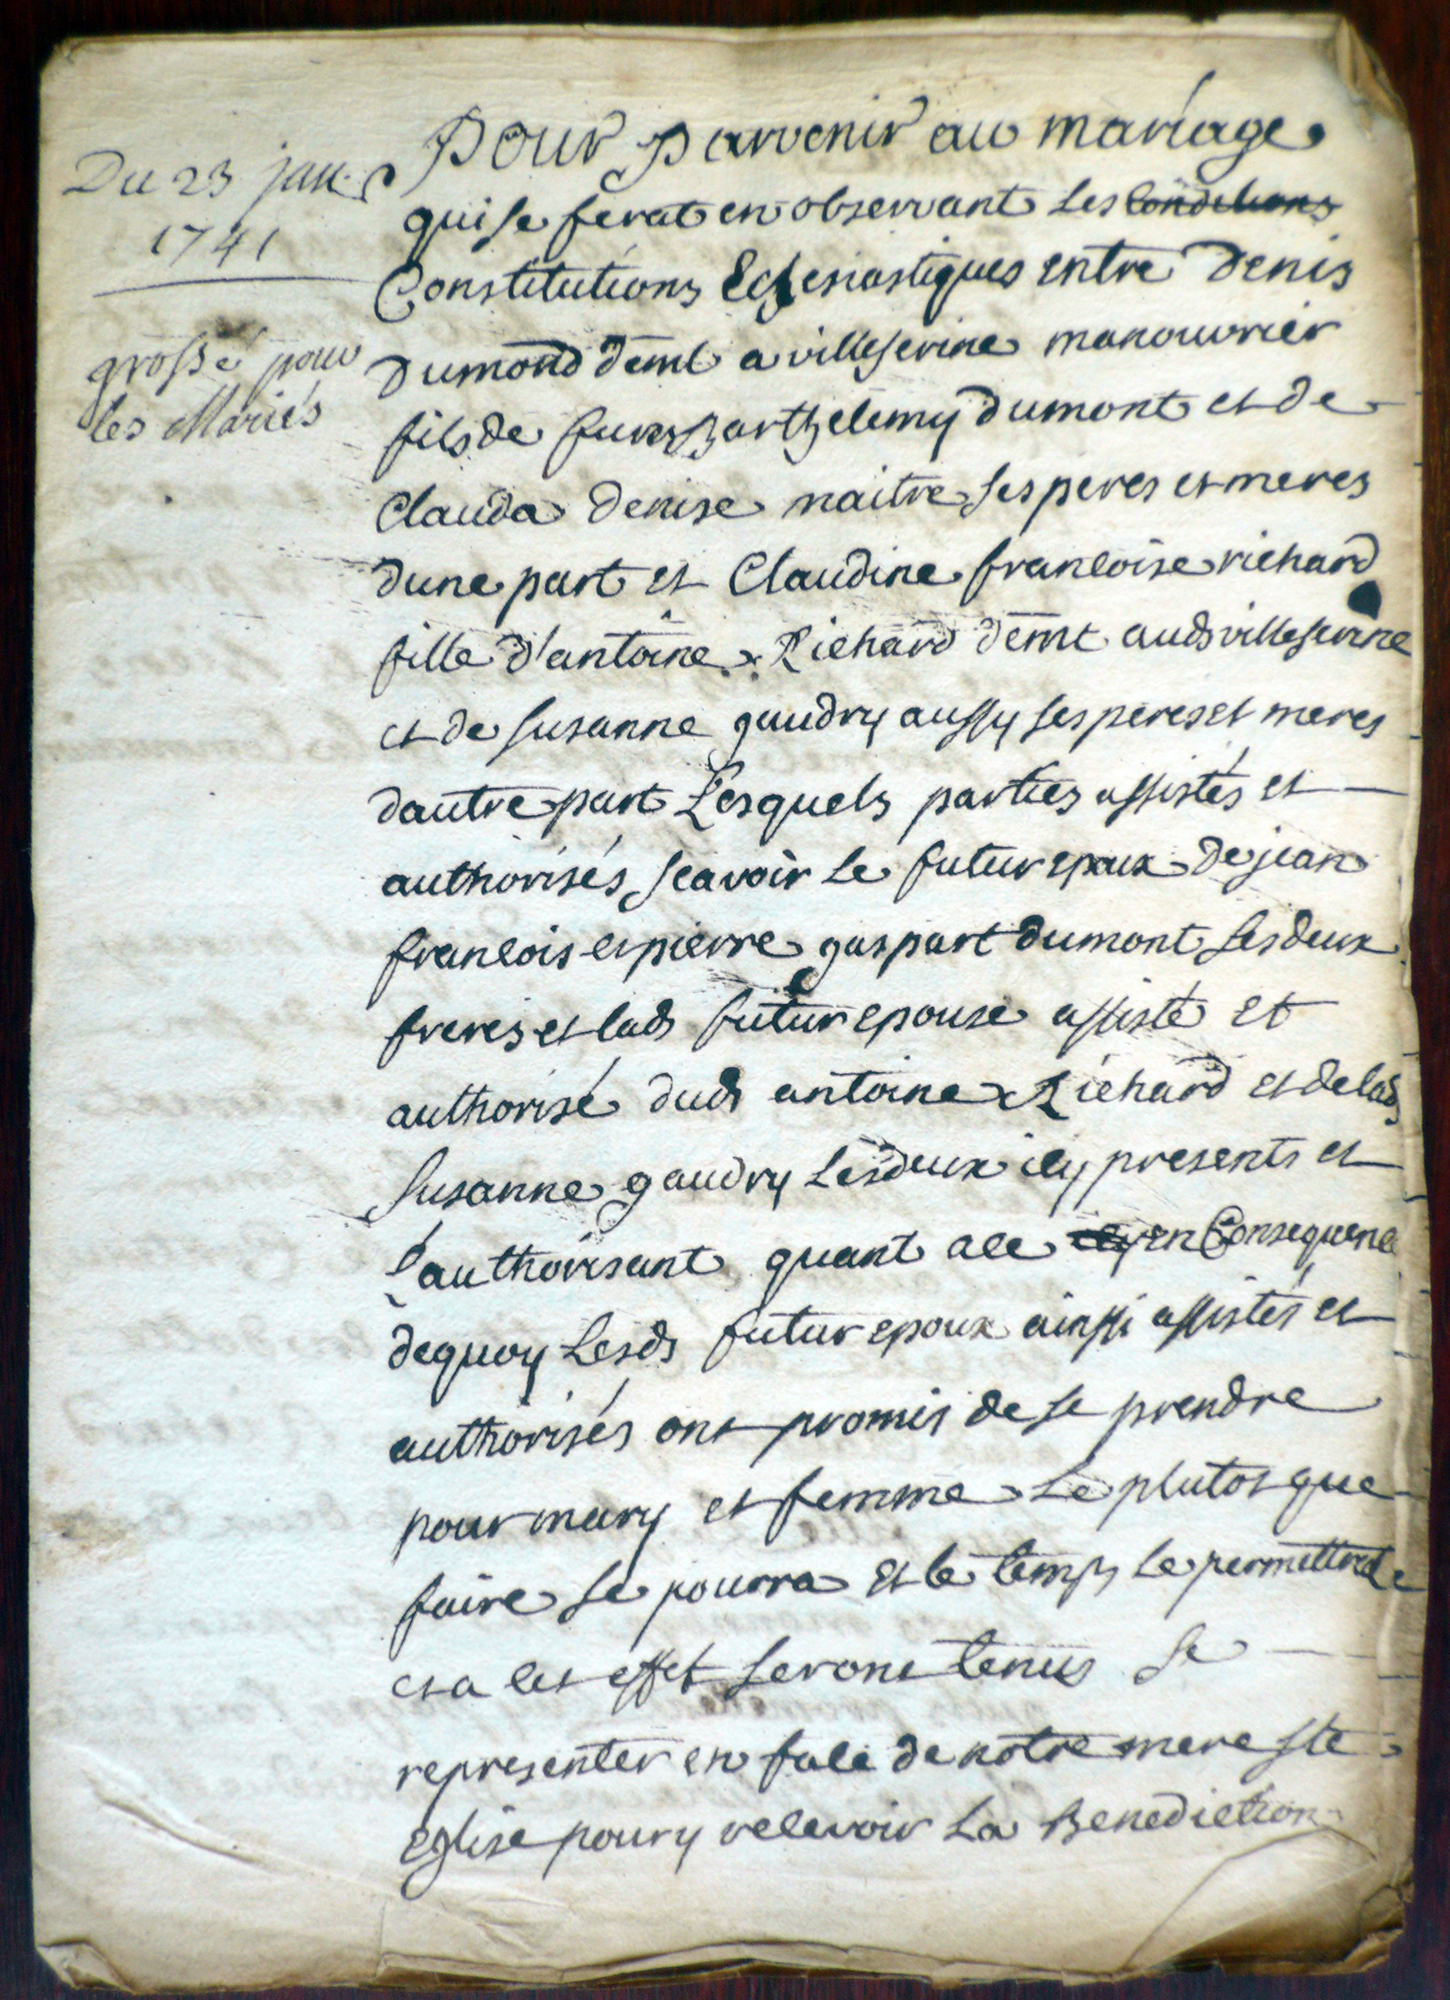 Du 23 janr
1741
grossé pour
les Mariés
Pour parvenir au mariage
qui se ferat en observant les conditions
Constitutions Eclesiastiques entre Denis
Dumond demt a villeserine manouvrier
fils de furent Barthelemy Dumont et de
Clauda Denise naitre ses peres et meres
dune part et Claudine francoise richard
fille d'antoine Richard demt auds villeserine
et de Susanne gaudry aussy ses peres et meres
dautre part Lesquels parties assistés et
authorisés scavoir le futur epoux de jean
francois et pierre gaspart dumont ses deux
freres et lads futur epouse assisté et
authorisé duds antoine Richard et de lads
Susanne gaudry Lesdeux icy presents et
l'authorisant quant a ce icy en Consequence
dequoy Lesds futur epoux ainssi assistés et
authorisés ont promis de se prendre
pour mary et femme le plutot que
faire se pourra et le temps le permettrat
et a cet effet seront tenus se
representer en face de notre mere ste
eglise pour y recevoir La Benediction